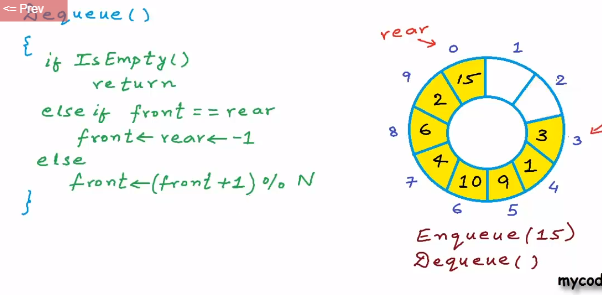 <= Prev
Dequeue()
{
if IsEmpty()
return
else if front == rear
front ← rear ← -1
else
front ← (front +1) % N
}
rear
0
1
2
3
4
5
6
7
8
9
15
2
6
4
10
9
1
3
Enqueue(15)
Dequeue()
mycod